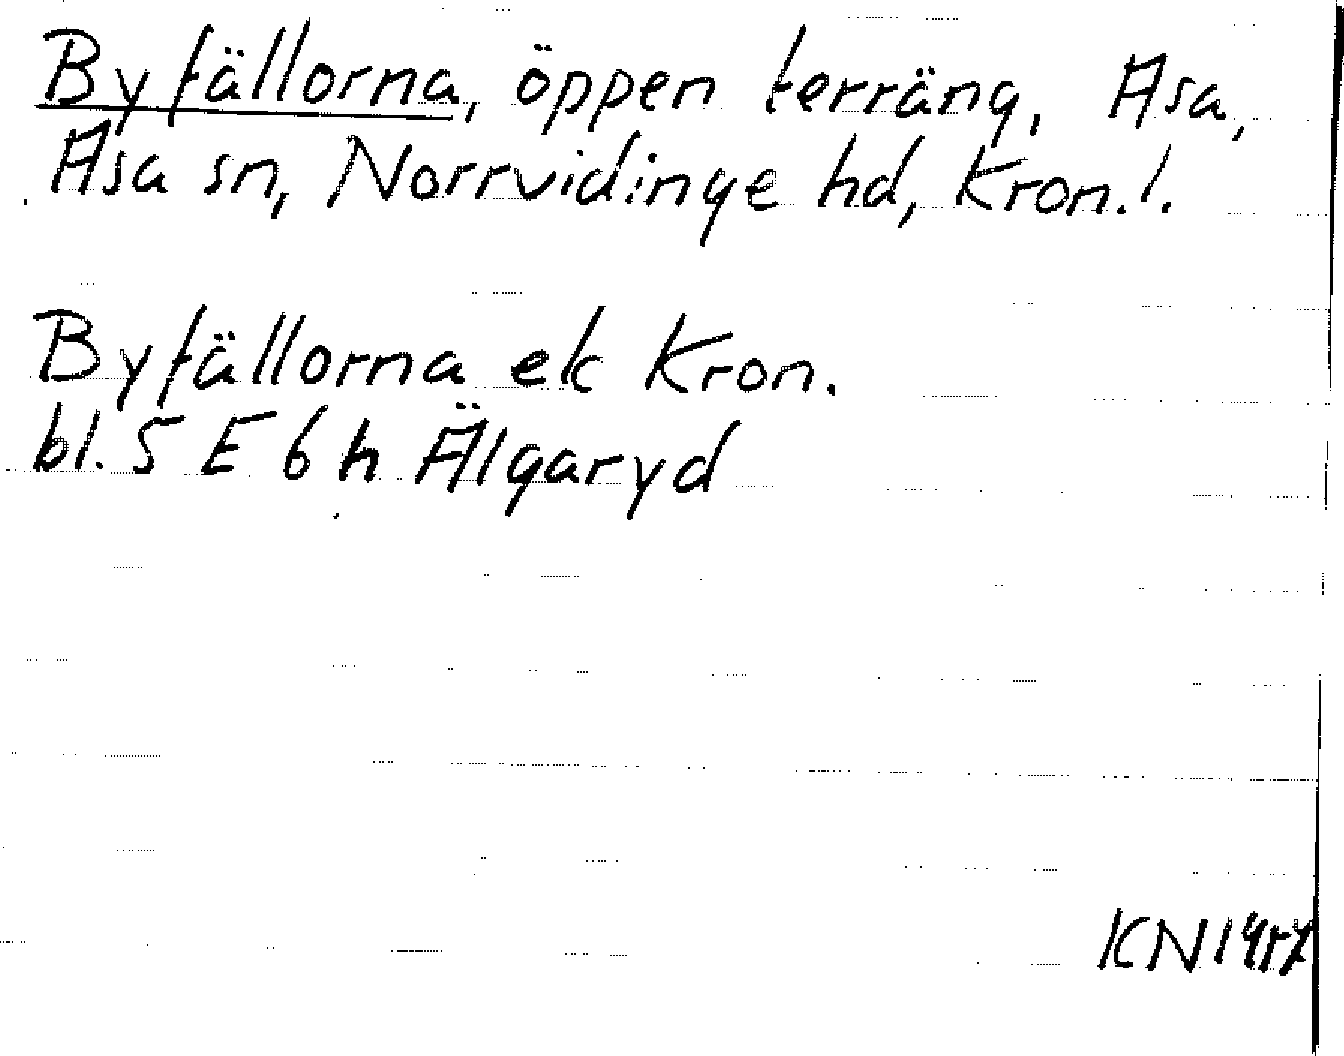 Byfällorna, öppen terräng, Asa,
Asa sn, Norrvidinge hd, Kron.l.
Byfällorna ek Kron.
bl. 5 E 6 h Älgaryd